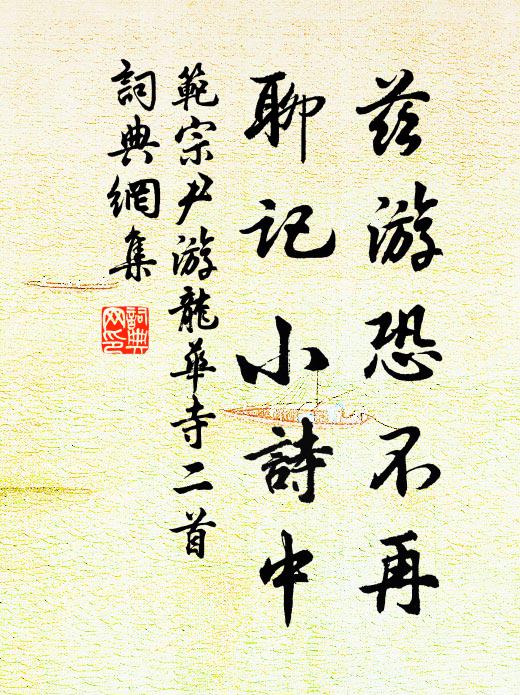 茲游恐不再
聊记小詩中
範宗尹游龍華寺二首
詞典網集
詞典
网印